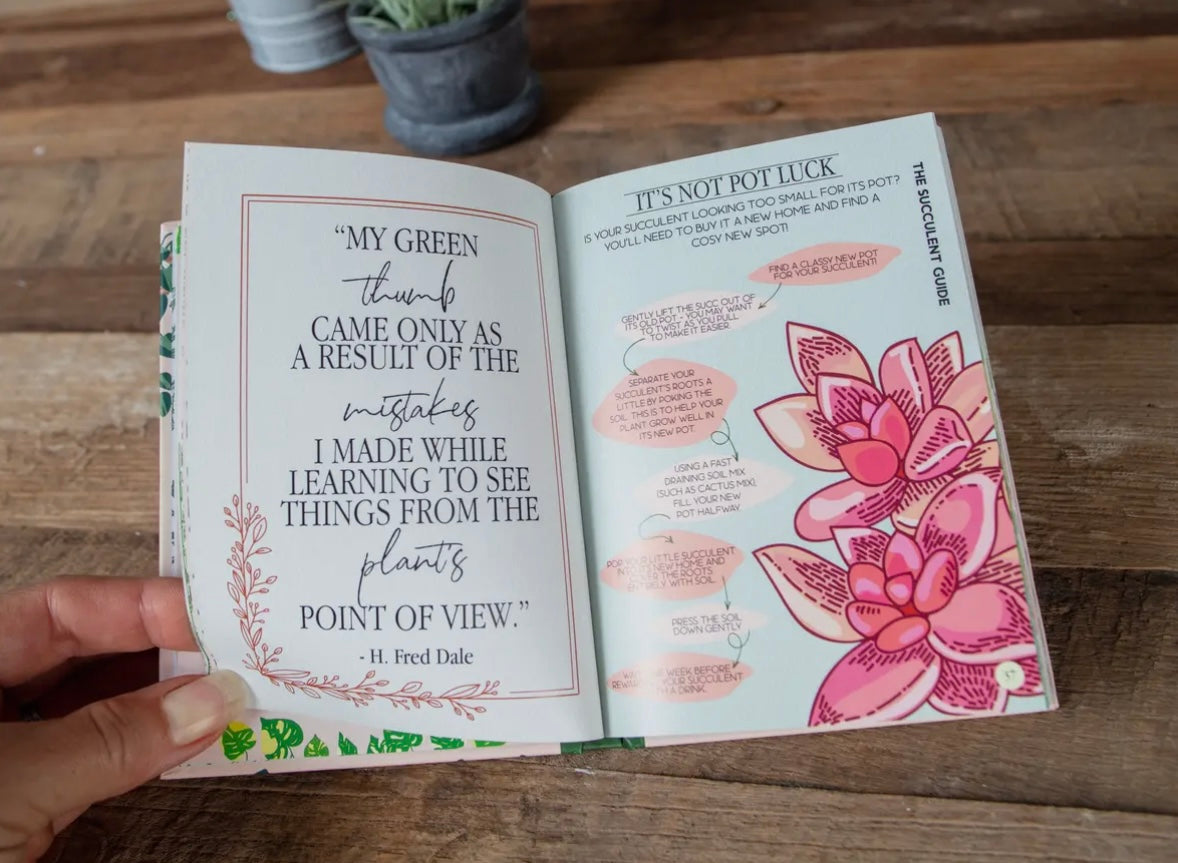 “MY GREEN
thumb
CAME ONLY AS
A RESULT OF THE
mistakes
I MADE WHILE
LEARNING TO SEE
THINGS FROM THE
plant's
POINT OF VIEW.”
- H. Fred Dale
IT'S NOT POT LUCK
IS YOUR SUCCULENT LOOKING TOO SMALL FOR ITS POT?
YOU'LL NEED TO BUY IT A NEW HOME AND FIND A
COSY NEW SPOT!
FIND A CLASSY NEW POT
FOR YOUR SUCCULENT!
GENTLY LIFT THE SUCC OUT OF
ITS OLD POT - YOU MAY WANT
TO TWIST AS YOU PULL
TO MAKE IT EASIER.
SEPARATE YOUR
SUCCULENT'S ROOTS A
LITTLE BY POKING THE
SOIL. THIS IS TO HELP YOUR
PLANT GROW WELL IN
ITS NEW POT.
USING A FAST
DRAINING SOIL MIX
(SUCH AS CACTUS MIX),
FILL YOUR NEW
POT HALFWAY.
POP YOUR LITTLE SUCCULENT
INTO ITS NEW HOME AND
COVER THE ROOTS
ENTIRELY WITH SOIL.
PRESS THE SOIL
DOWN GENTLY
WEEK BEFORE
YOUR SUCCULENT
A DRINK.
THE SUCCULENT GUIDE